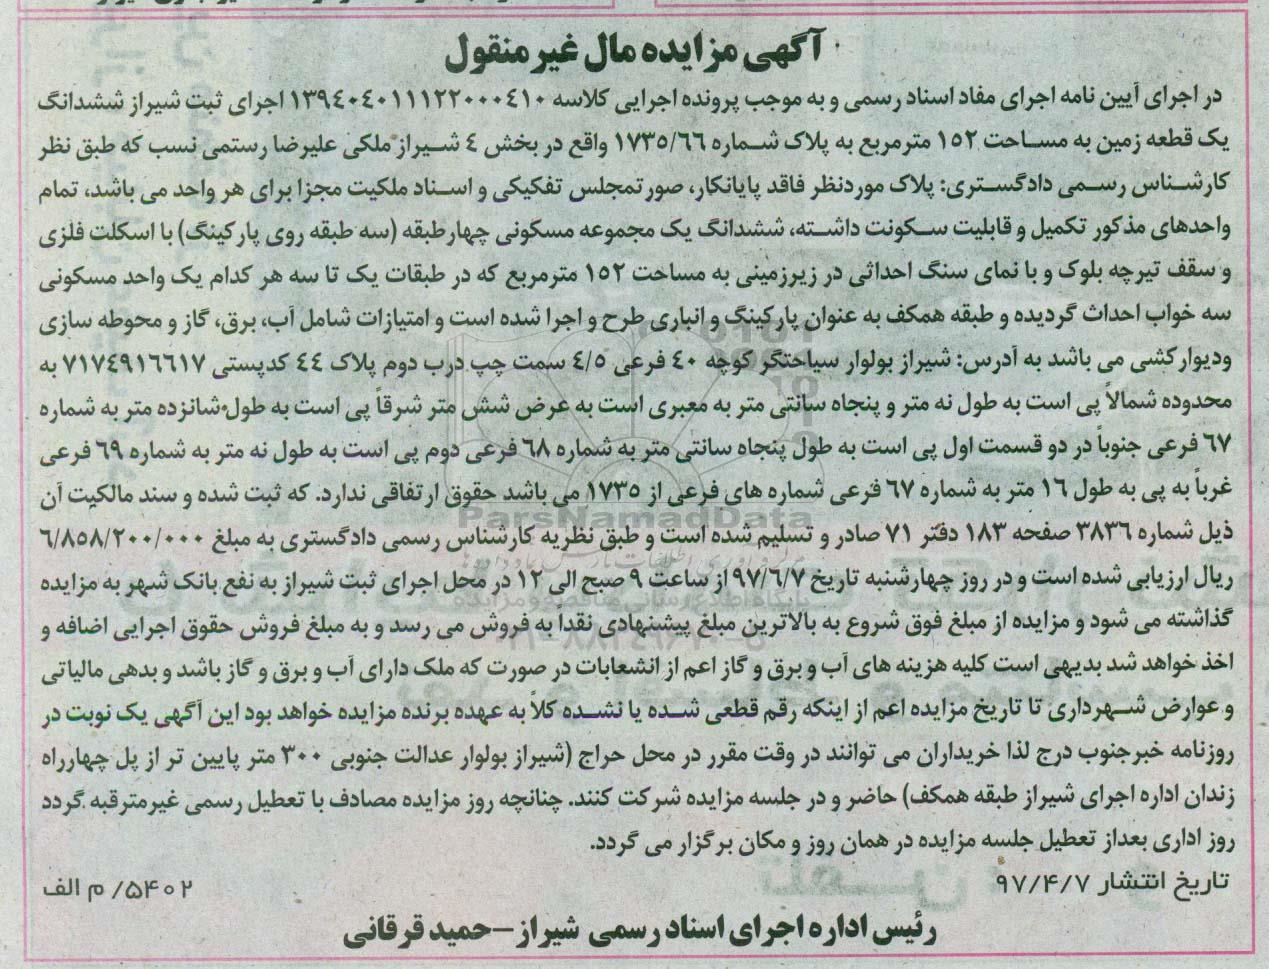 آگهی مزایده مال غیر منقول
در اجرای آیین نامه اجرای مفاد اسناد رسمی و به موجب پرونده اجرایی کلاسه ۱۳۹۴۰۴۰۱۱۱۲۲۰۰۰۴۱۰ اجرای ثبت شیراز ششدانگ
یک قطعه زمین به مساحت ۱۵۲ مترمربع به پلاک شماره ۱۷۳۵/۶۶ واقع در بخش ۴ شیراز ملکی علیرضا رستمی نسب که طبق نظر
کارشناس رسمی دادگستری: پلاک موردنظر فاقد پایانکار، صورتمجلس تفکیکی و اسناد ملکیت مجزا برای هر واحد می باشد، تمام
واحدهای مذکور تکمیل و قابلیت سکونت داشته، ششدانگ یک مجموعه مسکونی چهارطبقه (سه طبقه روی پارکینگ) با اسکلت فلزی
و سقف تیرچه بلوک و با نمای سنگ احداثی در زیرزمینی به مساحت ۱۵۲ مترمربع که در طبقات یک تا سه هر کدام یک واحد مسکونی
سه خواب احداث گردیده و طبقه همکف به عنوان پارکینگ و انباری طرح و اجرا شده است و امتیازات شامل آب، برق، گاز و محوطه سازی
ودیوارکشی می باشد به آدرس: شیراز بولوار سیاحتگر کوچه ۴۰ فرعی ۴/۵ سمت چپ درب دوم پلاک ۴۴ کدپستی ۷۱۷۴۹۱۶۶۱۷ به
محدوده شمالاً پی است به طول نه متر و پنجاه سانتی متر به معبری است به عرض شش متر شرقاً پی است به طول شانزده متر به شماره
۶۷ فرعی جنوباً در دو قسمت اول پی است به طول پنجاه سانتی متر به شماره ۶۸ فرعی دوم پی است به طول نه متر به شماره ۶۹ فرعی
غرباً به پی به طول ۱۶ متر به شماره ۶۷ فرعی شماره های فرعی از ۱۷۳۵ می باشد حقوق ارتفاقی ندارد. که ثبت شده و سند مالکیت آن
ذیل شماره ۳۸۳۶ صفحه ۱۸۳ دفتر ۷۱ صادر و تسلیم شده است و طبق نظریه کارشناس رسمی دادگستری به مبلغ ۶/۸۵۸/۲۰۰/۰۰۰
ریال ارزیابی شده است و در روز چهارشنبه تاریخ ۹۷/۶/۷ از ساعت ۹ صبح الی ۱۲ در محل اجرای ثبت شیراز به نفع بانک شهر به مزایده
گذاشته می شود و مزایده از مبلغ فوق شروع به بالاترین مبلغ پیشنهادی نقدا به فروش می رسد و به مبلغ فروش حقوق اجرایی اضافه و
اخذ خواهد شد بدیهی است کلیه هزینه های آب و برق و گاز اعم از انشعابات در صورت که ملک دارای آب و برق و گاز باشد و بدهی مالیاتی
و عوارض شهرداری تا تاریخ مزایده اعم از اینکه رقم قطعی شده یا نشده کلاً به عهده برنده مزایده خواهد بود این آگهی یک نوبت در
روزنامه خبرجنوب درج لذا خریداران می توانند در وقت مقرر در محل حراج (شیراز بولوار عدالت جنوبی ۳۰۰ متر پایین تر از پل چهارراه
زندان اداره اجرای شیراز طبقه همکف) حاضر و در جلسه مزایده شرکت کنند. چنانچه روز مزایده مصادف با تعطیل رسمی غیرمترقبه گردد
روز اداری بعداز تعطیل جلسه مزایده در همان روز و مکان برگزار می گردد.
تاریخ انتشار ۹۷/۴/۷
۵۴۰۲/ م الف
رئیس اداره اجرای اسناد رسمی شیراز-حمید قرقانی
ParsNamadData
پایگاه اطلاع رسانی مناقصه و مزایده